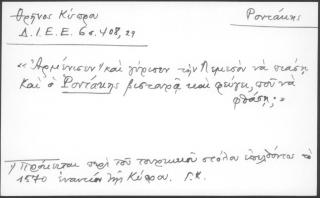 Θρῆνος Κύπρου
Ροντάκης
Δ.Ι.Ε.Ε. 6 σ. 408, 29
«Ἀρμένισεν¹⁾ καὶ γύρισεν τὴν Λεμεσὸν νὰ πιάσῃ
καὶ ὁ Ροντάκης βιστιρᾷ καὶ φεύγει, ποῦ νὰ
φθάσῃ;»
1) Πρόκειται περὶ τοῦ τουρκικοῦ στόλου ἐπελθόντος τὸ
1570 ἐναντίον τῆς Κύπρου. Γ.Κ.